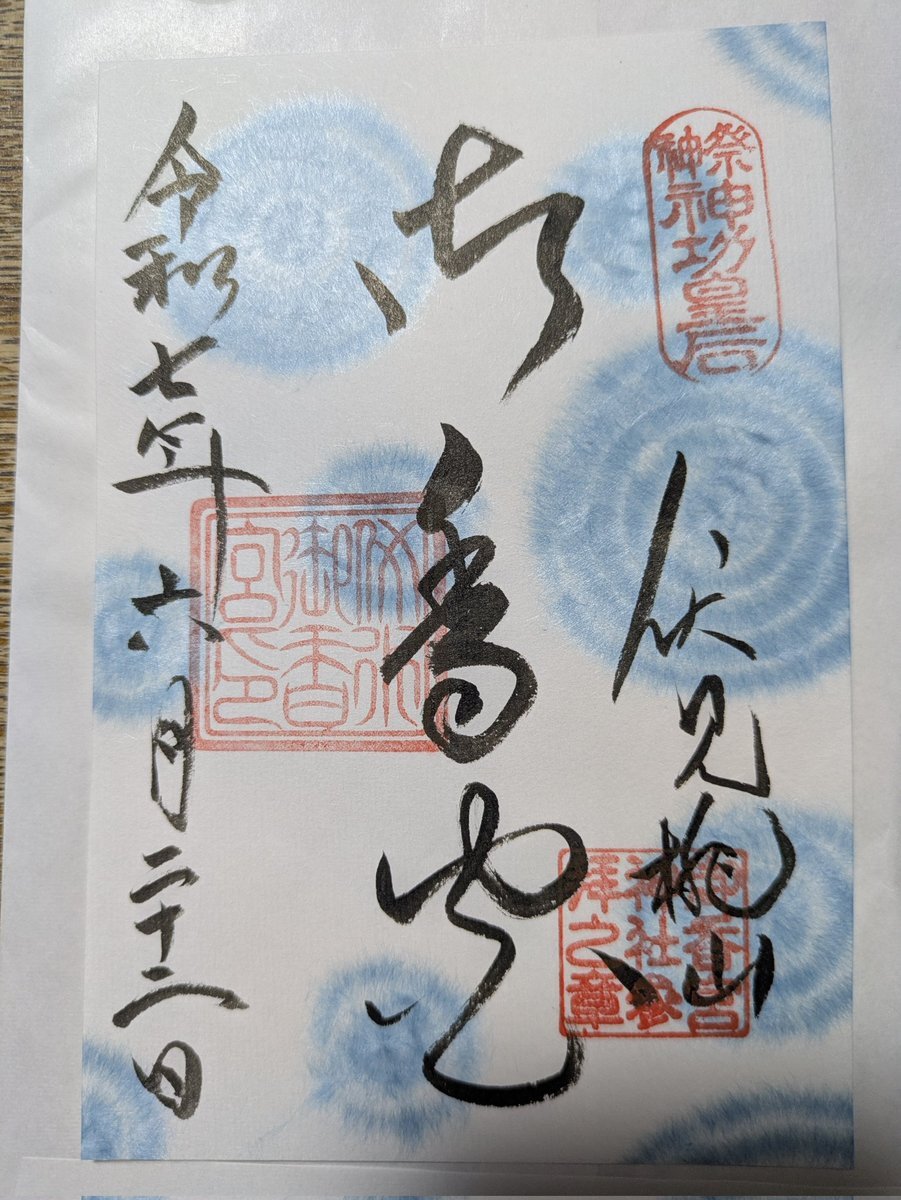 祭神
神功皇后
伏見桃山
御香宮
神社参
拝之章
御香宮
伏水
御香
宮之印
令和七年六月二十二日